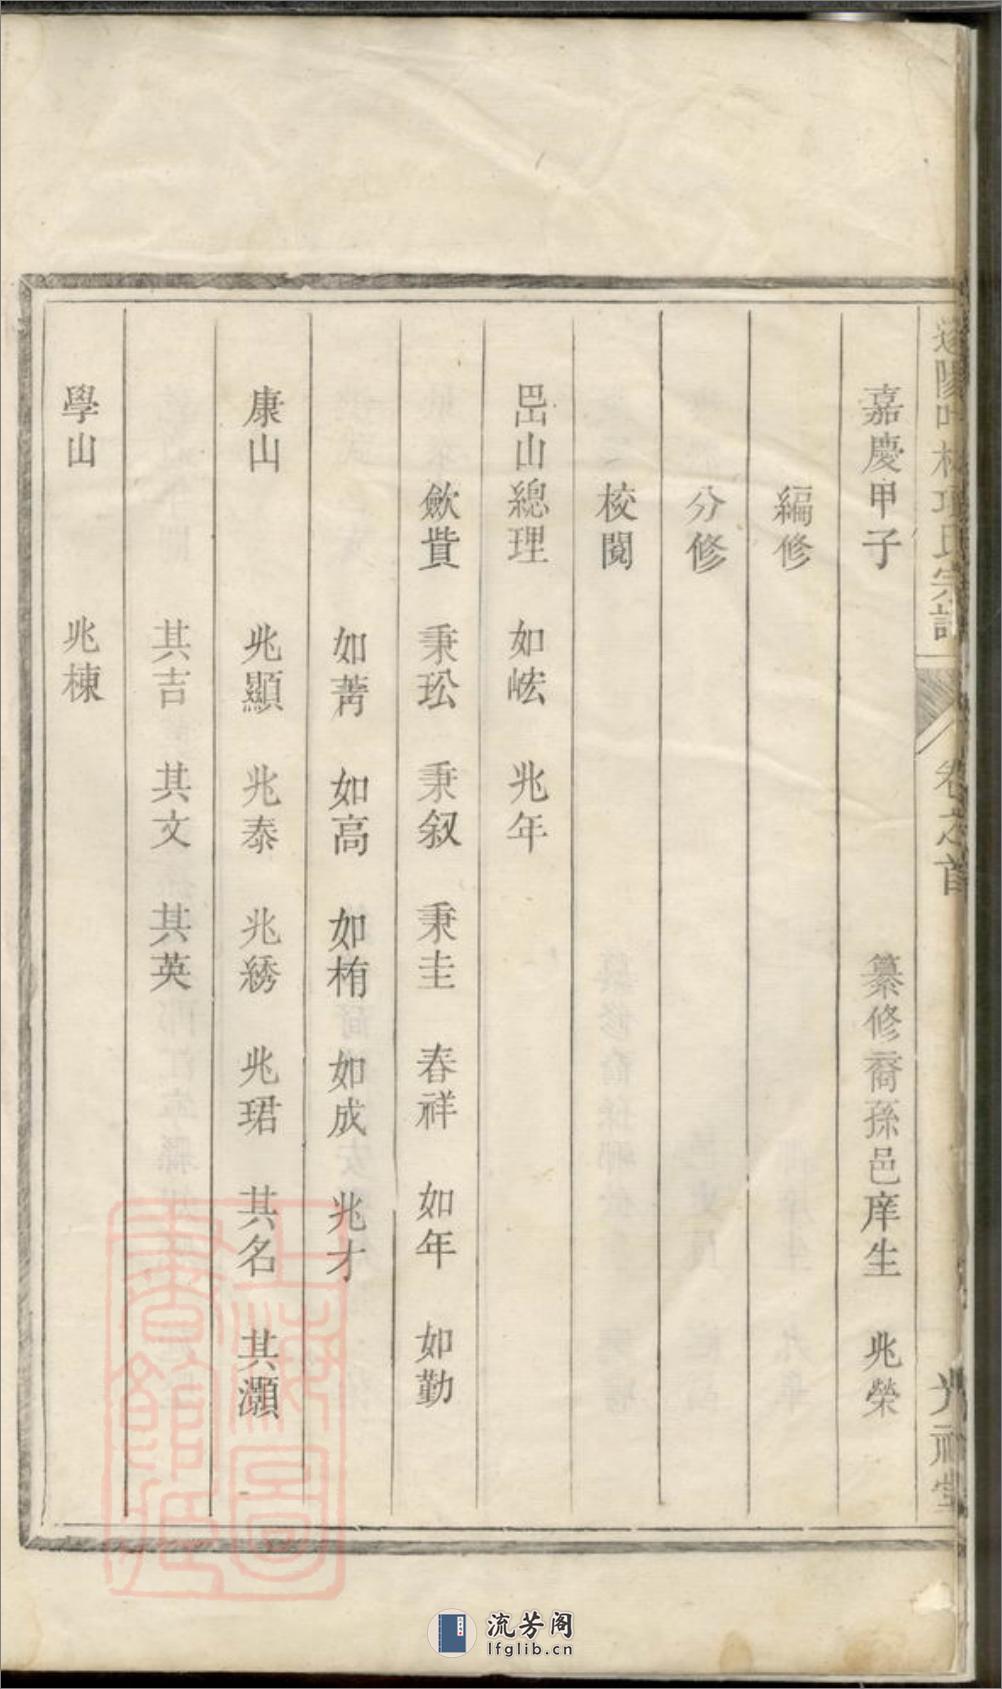 嘉慶甲子 纂修裔孫邑庠生 兆榮
編修
分修
校閱
邑山總理 如峵 兆年
歛貲 秉玜 秉叙 秉圭 春祥 如年 如勤
如菁 如高 如栯 如成 兆才
康山 兆顯 兆泰 兆綉 兆珺 其名 其灝
其吉 其文 其英
學山 兆棟
氏宗譜
卷之首
上海圖書館藏
流芳阁
lfglib.cn